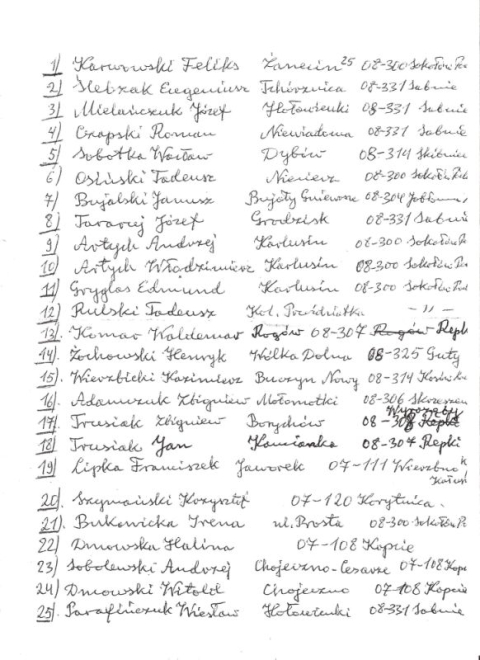 1) Karwowski Feliks Żanecin 25 08-300 Sokołów
2) Ślebzak Eugeniusz Tchórznica 08-331 Sabnie
3) Mielańczuk Józef Hołowienki 08-331 Sabnie
4) Czapski Roman Niewiadoma 08-331 Sabnie
5) Sobotka Wacław Dybów 08-314 Skibniew
6) Osiński Tadeusz Nieciecz 08-300 Sokołów
7) Bujalski Janusz Bujały Gniewosze 08-304
8) Józef Grodzisk 08-331 Sabnie
9) Artych Andrzej Karlusin 08-300 Sokołów
10) Artych Włodzimierz Karlusin 08-300 Sokołów
11) Gryglas Edmund Karlusin 08-300 Sokołów
12) Rulski Tadeusz Kol. -"-
13). Komar Waldemar Rogów 08-307 Rogów Repki
14). Żochowski Henryk Wólka Dolna 08-325 Guty
15). Wierzbicki Kazimierz Buczyn Nowy 08-314
16). Adamczuk Zbigniew Mołomotki 08-306
17). Trusiak Zbigniew Borychów 08-
18) Trusiak Jan Kamianka 08-307 Repki
19) Lipka Franciszek Jaworek 07-111 Wierzbno
20). Szymański Krzysztof 07-120 Korytnica.
21). Bukowicka Irena ul. Prosta 08-300 Sokołów
22) Dmowska Halina 07-108 Kopcie
23) Sobolewski Andrzej Chojeczno-Cesarze 07-108 Kopcie
24) Dmowski Witold Chojeczno 07-108 Kopcie
25) Parafińczuk Wiesław Hołowienki 08-331 Sabnie